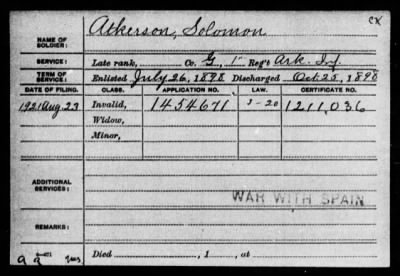 CX
NAME OF SOLDIER: Atkerson, Solomon
SERVICE: Late rank, Co. G, 1" Reg't Ark. Inf.
TERM OF SERVICE: Enlisted July 26, 1898 Discharged Oct. 25, 1898
DATE OF FILING. CLASS. APPLICATION NO. LAW. CERTIFICATE NO.
1921 Aug. 23 Invalid, 1454671 3-20 1211,036
Widow,
Minor,
ADDITIONAL SERVICES:
WAR WITH SPAIN
REMARKS:
Died , 1 , at